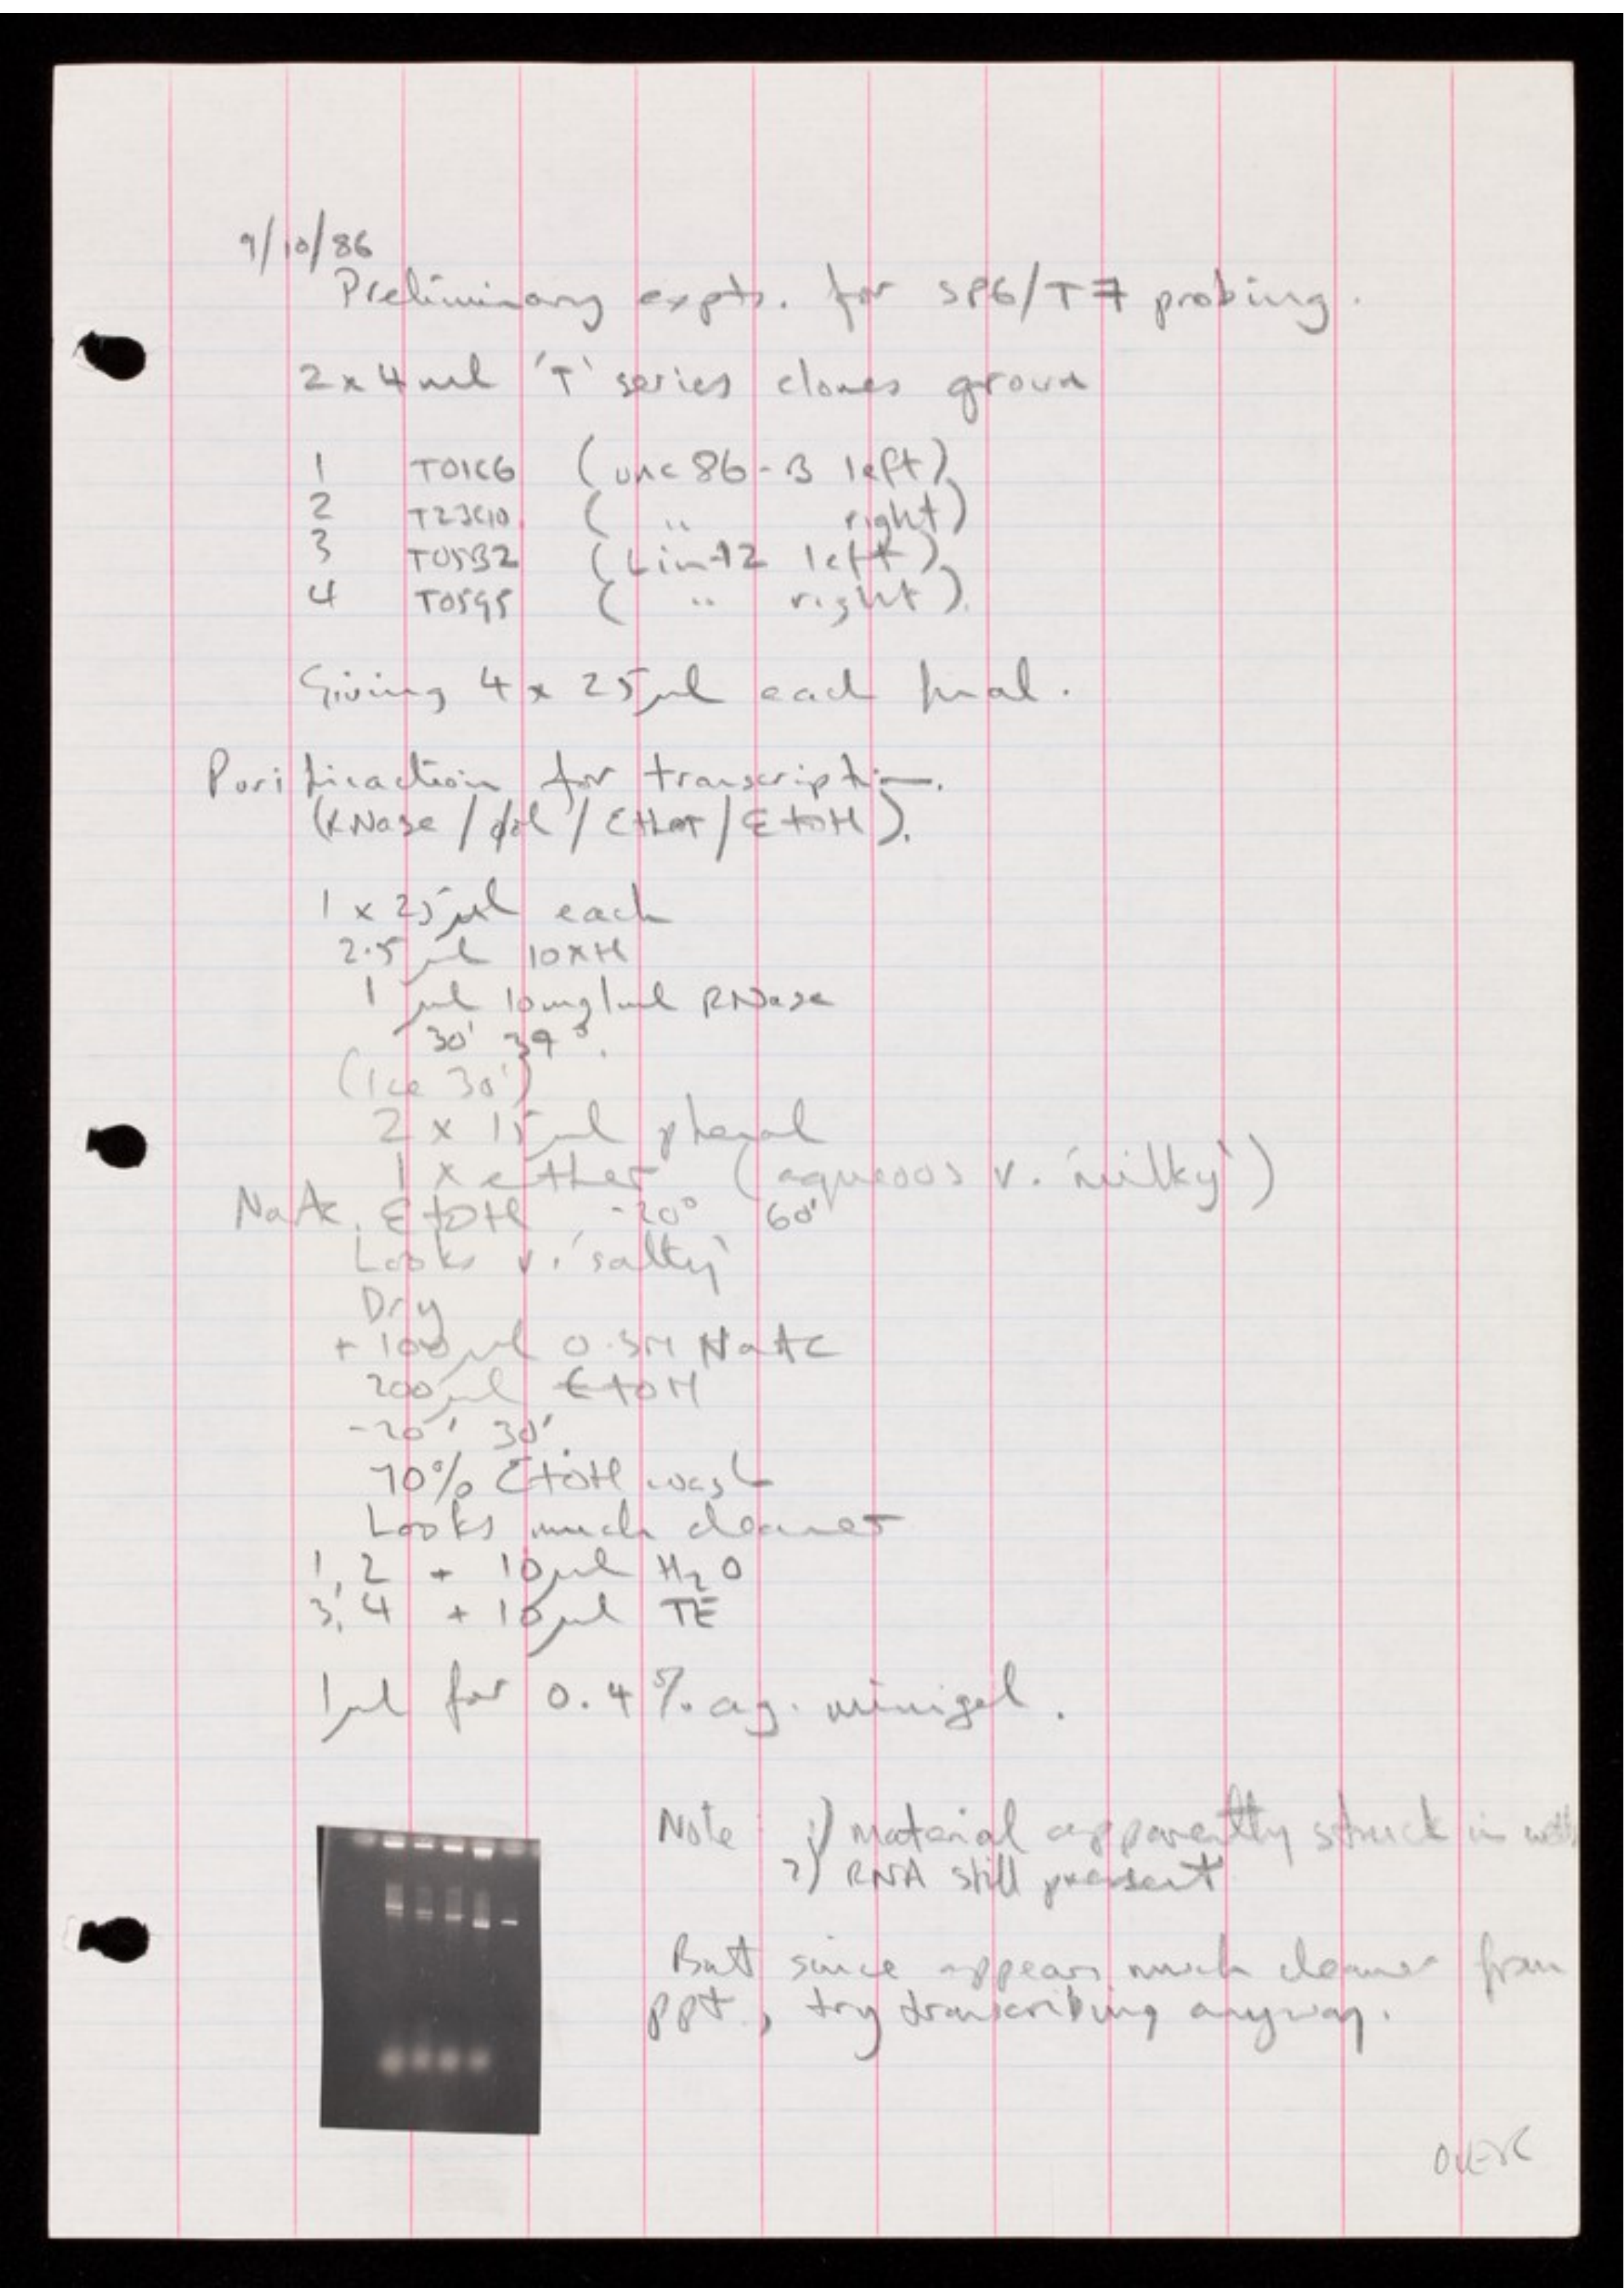 9/10/86
Preliminary expts. for SP6/T7 probing.
2 x 4 ml 'T' series clones grown
1 T01C6 (unc 86-B left)
2 T23C10 ( " right)
3 T05B2 (Lin-12 left)
4 T05G5 ( " right).
Giving 4 x 25 μl each final.
Purification for transcription.
(RNase / / Ether / EtOH).
1 x 25 μl each
2.5 μl 10xH
1 μl 10mg/ml RNase
30' 37°.
(Ice 30')
2 x 15 μl phenol
1 x ether (aqueous v. 'milky')
NaAc, EtOH -20° 60'
Looks v. 'salty'
Dry
+ 100 μl 0.3M NaAc
200 μl EtOH
-20° 30'.
70% EtOH wash
Looks much cleaner
1, 2 + 10 μl H2O
3, 4 + 10 μl TE
1 μl for 0.4% ag. minigel.
Note : 1) Material apparently stuck in wells
2) RNA still present
But since appears much cleaner from
ppt., try transcribing anyway.
OVER